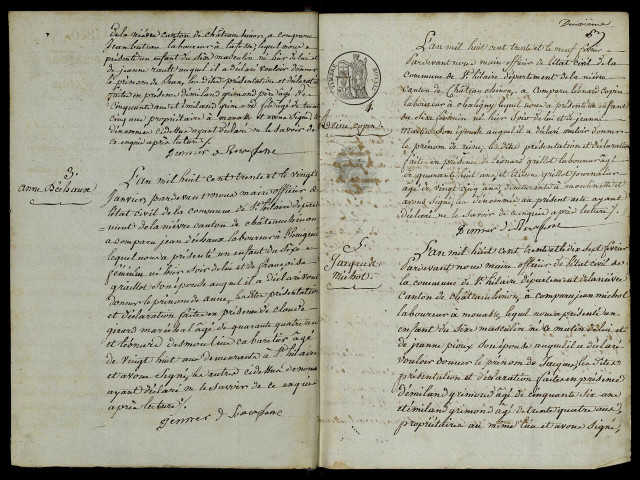 de la nièvre canton de château chinon, a comparu
laboureur à lequel nous a
présenté un enfant du sexe masculin né hier de lui et
de jeanne auquel il a déclaré vouloir donner
le prénom de Jean, les dites présentation et déclaration
faite en présence d'émiland grimond père âgé de
cinquante ans et émiland grimond fils âgé de trente
cinq ans propriétaire à et avons signé, les
dénommés ci dessus ayant déclaré ne le savoir de
ce enquis après lecture /.
3.
anne Déchaux
L'an mil huit cent trente et le vingt
Janvier, pardevant nous maire officier de
l'état civil de la commune de St hilaire départe
ment de la nièvre canton de château chinon
a comparu jean déchaux laboureur à
lequel nous a présenté un enfant du sexe
féminin né hier soir de lui et de françoise
son épouse auquel il a déclaré vouloir
donner le prénom de anne, les dites présentation
et déclaration faite en présence de claude
girard maréchal âgé de quarante quatre ans
et léonard cabartier âgé
de vingt huit ans demeurants à St hilaire
et avons signé, les autres ci dessus dénommés
ayant déclaré ne le savoir de ce enquis
après lecture /.
Deuxième
4.
L'an mil huit cent trente et le neuf février
Pardevant nous maire officier de l'état civil de la
commune de St hilaire département de la nièvre
Canton de Château chinon, a comparu léonard Copin
laboureur à lequel nous a présenté un enfant
du sexe féminin né hier soir de lui et de jeanne
son épouse auquel il a déclaré vouloir donner
le prénom de reine, les dites présentation et déclaration
faite en présence de léonard laboureur âgé
de quarante huit ans, et étienne journalier
âgé de vingt cinq ans, demeurants à et
avons signé, les dénommés au présent acte ayant
déclaré ne le savoir de ce enquis après lecture /.
reine copin
5.
Jacques
Michot
L'an mil huit cent trente et le dix sept février
Pardevant nous maire officier de l'état civil de
la commune de St hilaire département de la nièvre
Canton de Château chinon, a comparu jean michot
laboureur à lequel nous a présenté un
enfant du sexe masculin né ce matin de lui et
de jeanne son épouse auquel il a déclaré
vouloir donner le prénom de Jacques, les dites
présentation et déclaration faite en présence
d'émiland grimond âgé de cinquante six ans
et émiland grimond âgé de trente quatre ans
propriétaire au même lieu et avons signé,